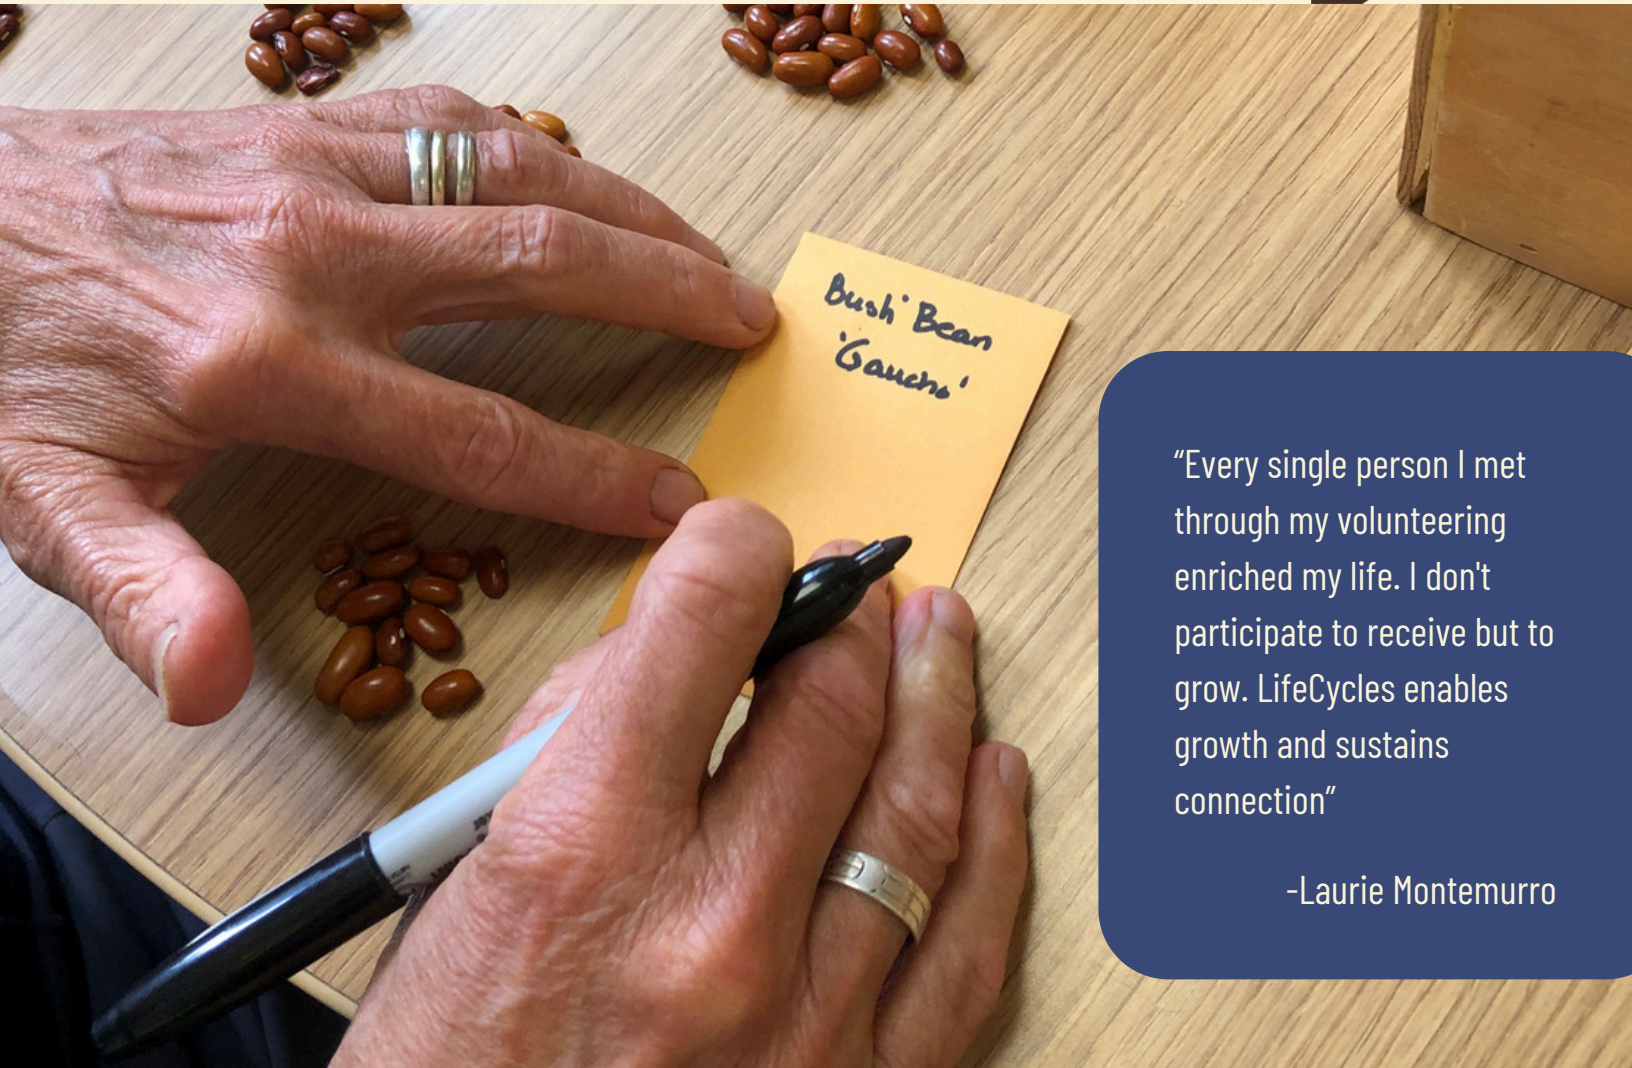 Bush Bean
'Gaucho'
“Every single person I met
through my volunteering
enriched my life. I don't
participate to receive but to
grow. LifeCycles enables
growth and sustains
connection”
-Laurie Montemurro